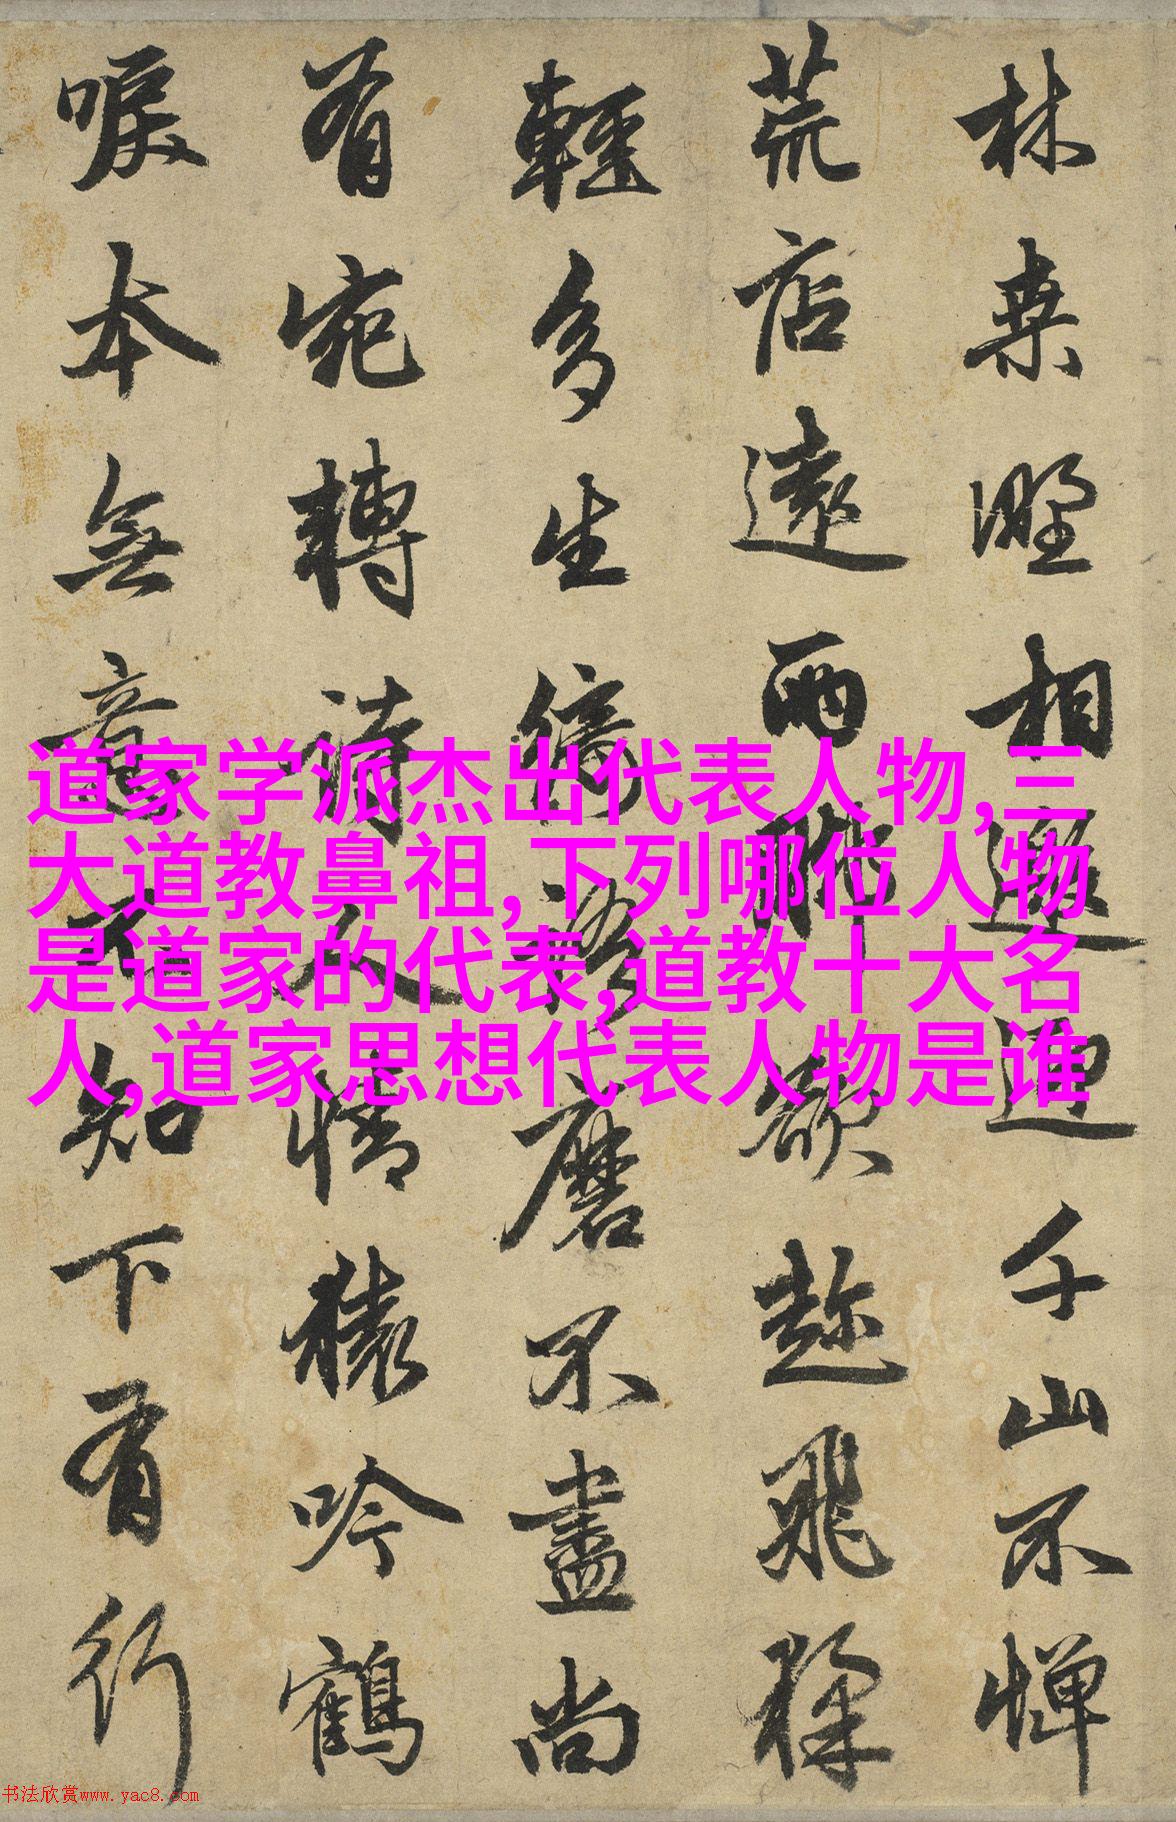 林桒野相邀迎千山不惮
荒店遠兩脚欲趂飛猱
輕多生綺語磨不盡尚
有宛轉詩人情猿吟鶴
唳本無意不知下有行
道家学派杰出代表人物,三
大道教鼻祖,下列哪位人物
是道家的代表,道教十大名
人,道家思想代表人物是谁
书法欣赏www.yac8.com